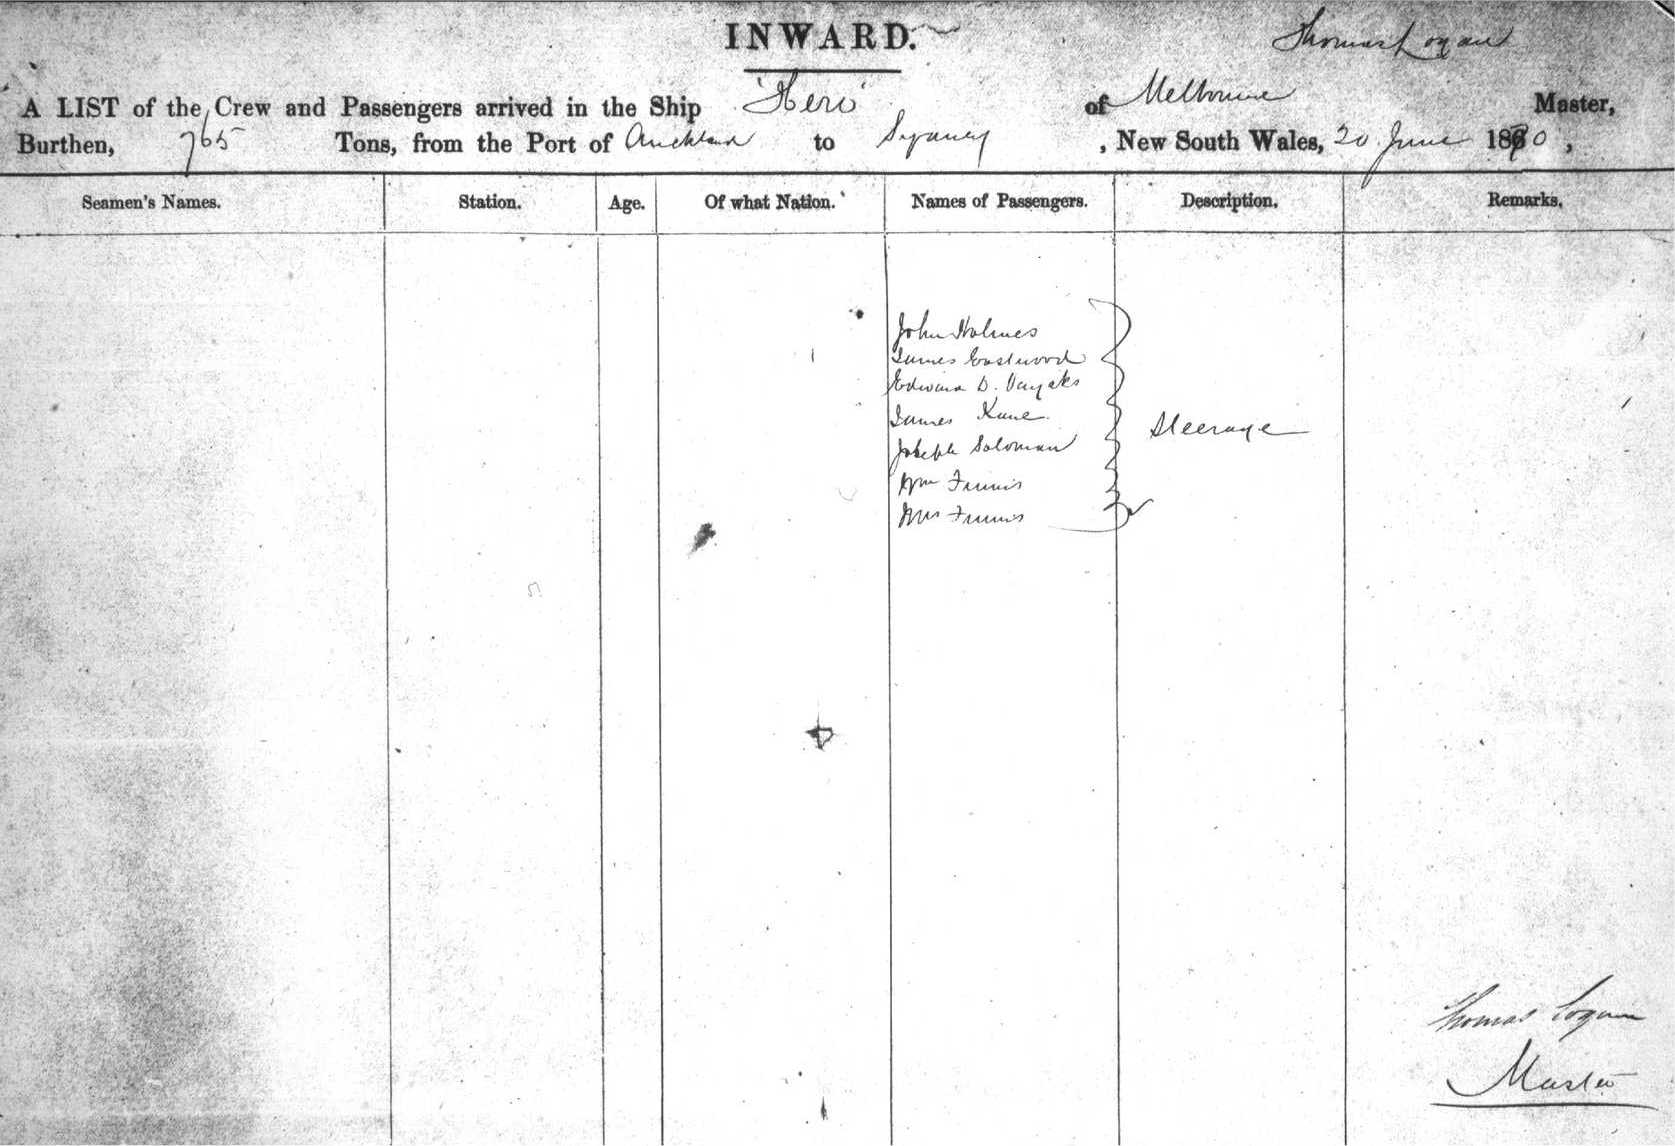 INWARD.
Thomas Logan
A LIST of the Crew and Passengers arrived in the Ship 'Hero' of Melbourne Master,
Burthen, 765 Tons, from the Port of Auckland to Sydney, New South Wales, 20 June 1870,
Seamen's Names. Station. Age. Of what Nation. Names of Passengers. Description. Remarks.
John Holmes
James Eastwood
Edward D.
James Kane
Steerage
Joseph Soloman
Wm
Mrs
Thomas Logan
Master